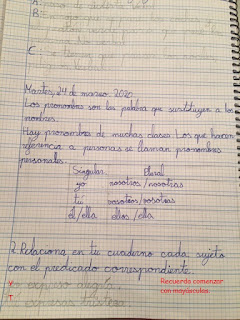 A.
B.
C.
Martes, 24 de marzo 2020
Los pronombres son las palabra que sustituyen a los
nombres.
Hay pronombres de muchas clases. Los que hacen
referencia a personas se llaman pronombres
personales.
Singular Plural
yo nosotros / nosotras
tú vosotros / vosotras
él/ella ellos / ella
2. Relaciona en tu cuaderno cada sujeto
con el predicado correspondiente.
Recuerda comenzar
con mayúsculas.
Y
Yo expreso alegría.
T